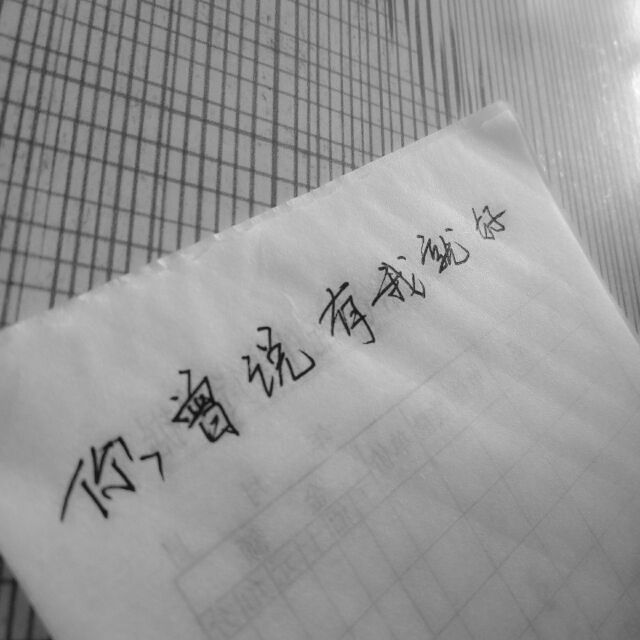 你曾说有我就好